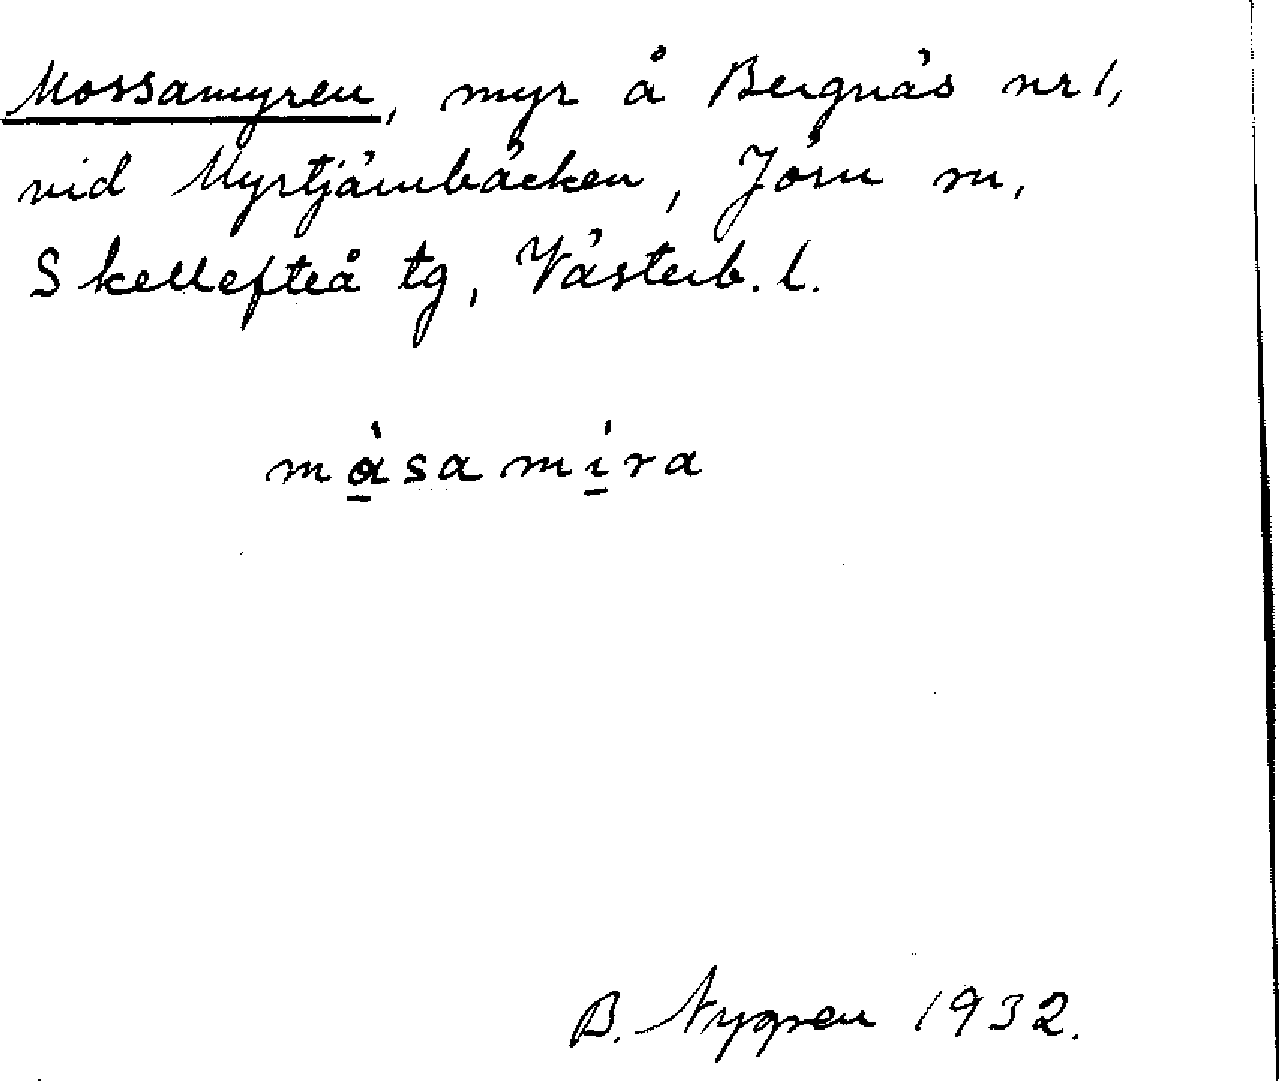 Mossamyren, myr å Bergnäs nr 1,
vid Myrtjärnbäcken, Jörn sn,
Skellefteå tg, Västerb. l.
mɑ̱̀samì̱ra
B. Nygren 1932.